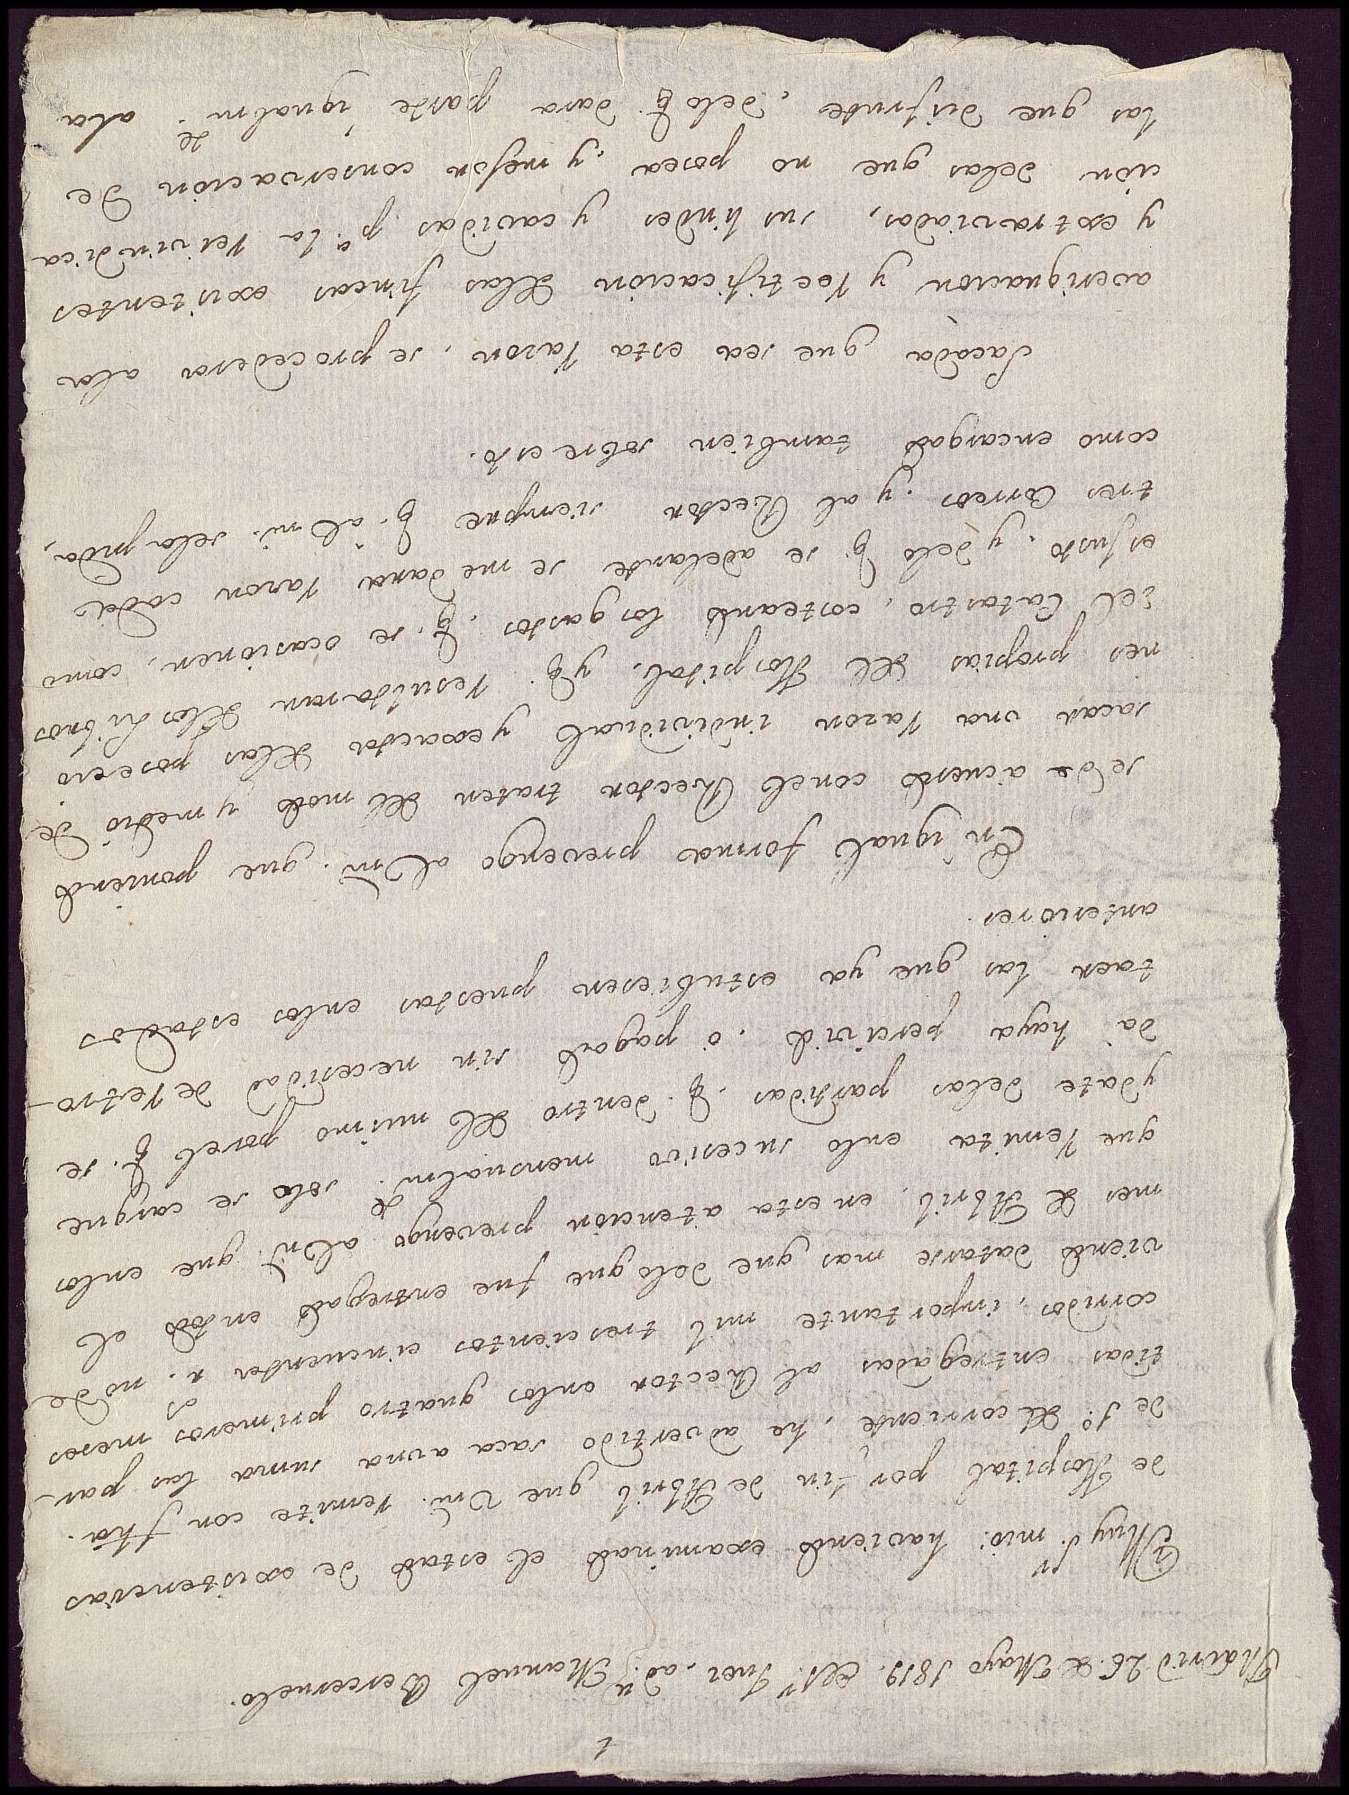 1
Madrid 26. de Mayo 1819. Al Sr. Juez. ad. Dn Manuel Berceruelo.
Muy Sr. mio: haviendo examinado el estado de existencias
de Hospital por fin de Abril que Vm. remite con fha.
de 1º. del corriente, he advertido saca a una suma las par-
tidas entregadas al Rector en los quatro primeros meses
corridos, importante mil trescientos cincuenta rs. no de
viendo datarse mas que de lo que fue entregado en todo el
mes de Abril, en esta atencion prevengo al Vm. que en los
que remita en lo sucesivo mensualmte. solo se cargue
y date de las partidas q. dentro del mismo por el q. se
dá haya percivido, ó pagado sin necesidad de retro-
taer las que ya estubiesen puestas en los estados
anteriores.
En igual forma prevengo al Vm. que poniendo
se de acuerdo con el Rector traten del modo y medio de
sacar una razon individual y exacta de las posesio
nes propias del Hospital, y q. resultaran de los Libros
del Catastro, costeando los gastos q. se ocasionen, como
es justo, y de lo q. se adelante se me dará razon cada
tres Correos, y al Rector siempre q. al Vm. se la pida,
como encargado tambien sobre esto.
Sacada que sea esta razon, se procederá a la
averiguacion y rectificacion de las fincas existentes
y extraviadas, sus lindes y cavidas pa. la reivindica
cion de las que no posea y mejor conservacion de
las que disfrute, de lo q. dara parte igualmte. a la